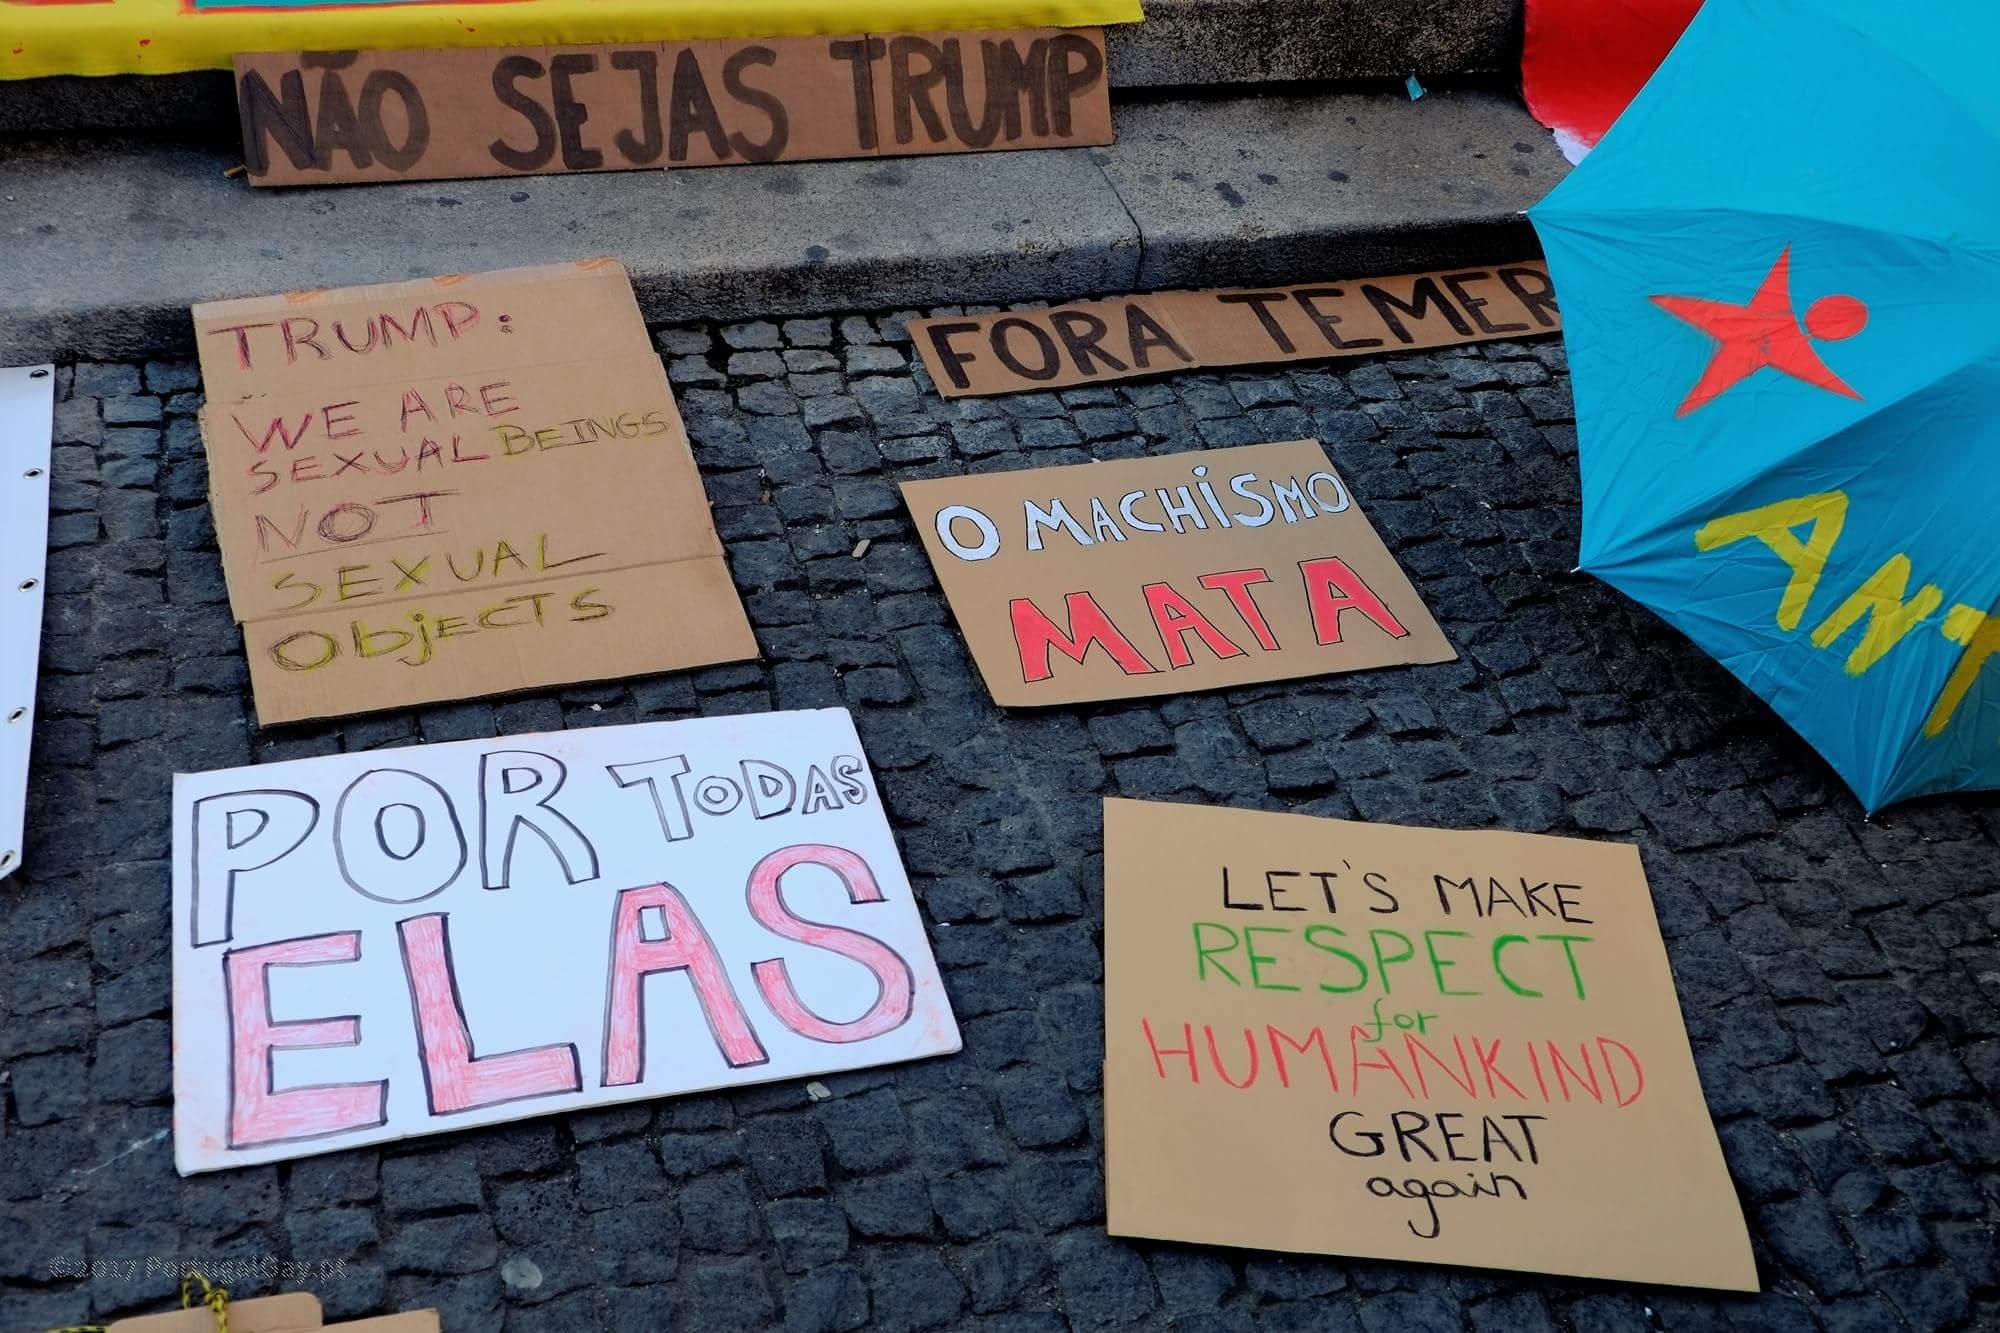 NÃO SEJAS TRUMP
TRUMP:
WE ARE
SEXUAL BEINGS
NOT
SEXUAL
ObjECTS
FORA TEMER
O MACHiSMO
MATA
ANT
POR TODAS
ELAS
LET'S MAKE
RESPECT
for
HUMANKIND
GREAT
again
©2017 PortugalGay.pt